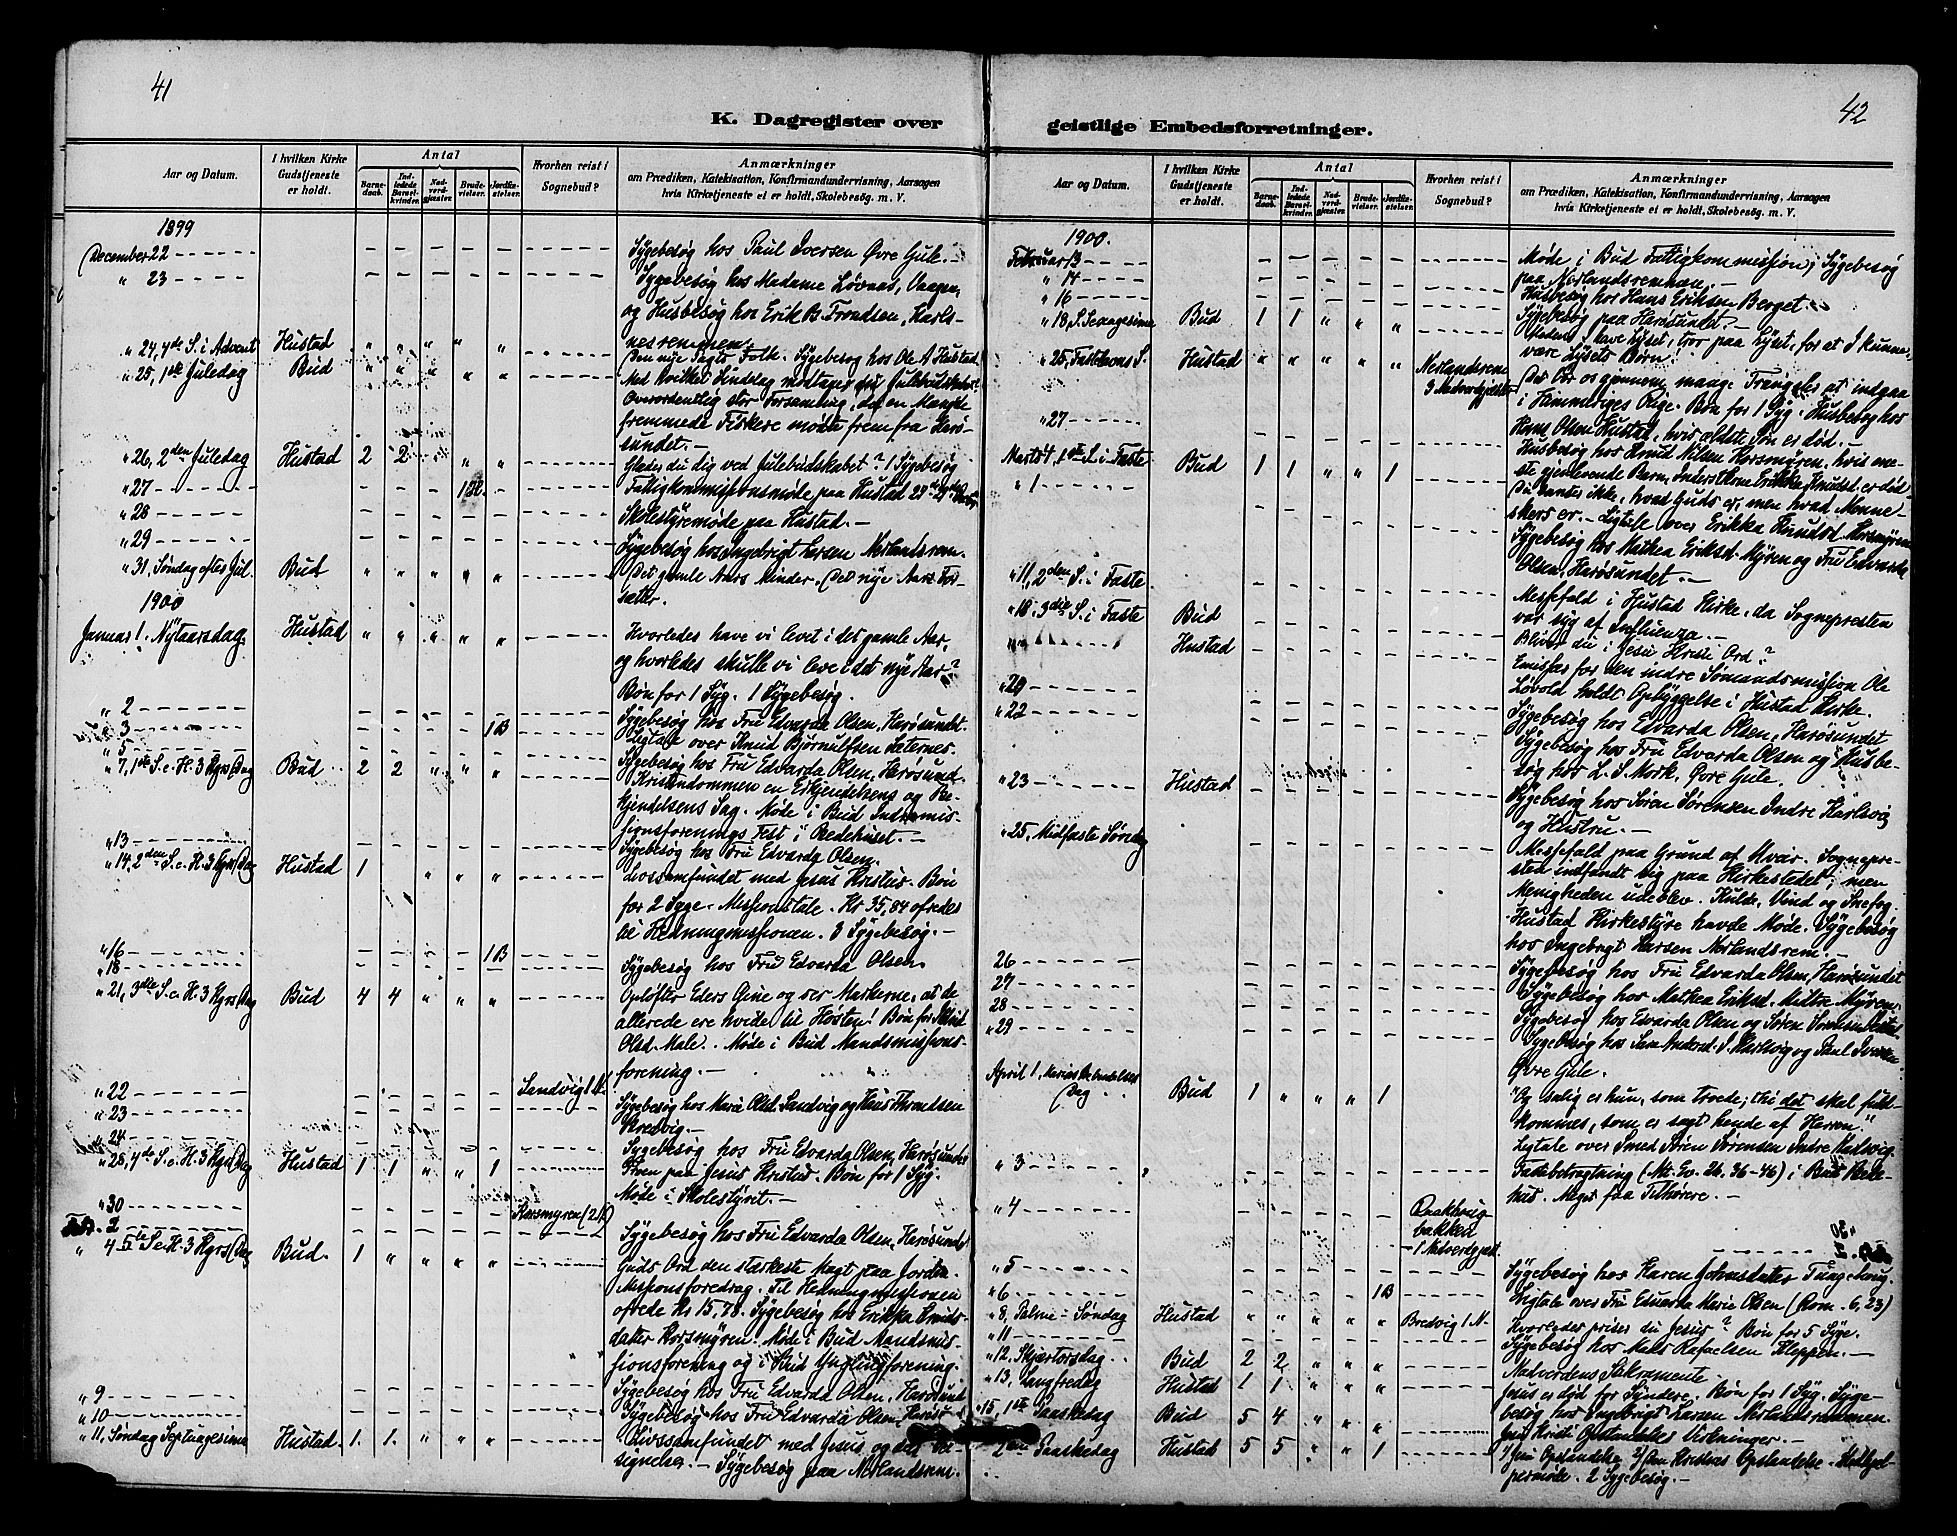 41
K. Dagregister over
Aar og Datum.
I hvilken Kirke Gudstjeneste er holdt.
Antal
Barnedaab.
Indledede Barselkvinder.
Nadverdgjæster.
Brudevielser.
Jordfæstelser.
Hvorhen reist i Sognebud?
Anmærkninger
om Prædiken, Katekisation, Konfirmandundervisning, Aarsagen
hvis Kirketjeneste ei er holdt, Skolebesøg. m. V.
1899
December 22 Sygebesøg hos Paul Iversen Øvre Gule.
" 23 Sygebesøg hos Madame Løvaas, Vaagen,
og Husbesøg hos Erik B. Trondsen, Karls-
nesremmen.
" 24, 4de S. i Advent Hustad " " " " " Den nye Pagts Folk. Sygebesøg hos Ole A. Hustad
" 25, 1ste Juledag Bud " " " " " Med hvilket Sindelag modtager du Julebudskabet?
Overordentlig stor Forsamling, da en Mængde
fremmede Fiskere mødte frem fra Harø-
sundet.
" 26, 2den Juledag Hustad 2 2 " " " Glæder du dig ved Julebudskabet? 1 Sygebesøg
" 27 Fattigkommissionsmøde paa Hustad
" 28 Skolestyremøde paa Hustad.
" 29 Sygebesøg hos Ingebrigt Larsen Nerlandsrem.
" 31, Søndag efter Jul. Bud " " " " " Det gamle Aars Minder. Det nye Aars For-
sætter.
1900
Januar 1. Nytaarsdag Hustad " " " " " Hvorledes have vi levet i det gamle Aar,
og hvorledes skulle vi leve i det nye Aar?
Bøn for 1 Syg. 1 Sygebesøg.
" 2 Sygebesøg hos Fru Edvarda Olsen, Harøsundet.
" 3 1B Ligtale over Knud Bjørnulfsen Sæternes.
" 5 Sygebesøg hos Fru Edvarda Olsen, Harøsund.
" 7, 1ste S. e. H. 3 Kgrs Dag Bud 2 2 " " " Kristendommen en Erkjendelsens og Be-
kjendelsens Sag. Møde i Bud Indremis-
sionsforenings Fest i Bedehuset.
" 13 Sygebesøg hos Fru Edvarda Olsen.
" 14, 2den S. e. H. 3 Kgrs Dag Hustad 1 " " " Livssamfundet med Jesus Kristus. Bøn
for 2 Syge. Missionstale. Kr 35,84 ofredes
til Hedningmissionen. 3 Sygebesøg.
" 16 1B
" 18 Sygebesøg hos Fru Edvarda Olsen.
" 21, 3die S. e. H. 3 Kgrs Dag Bud 4 4 " " " Opløfter Eders Øine og ser Markerne, at de
allerede ere hvide til Høsten! Bøn for
Olsd. Male. Møde i Bud Mandsmissions-
forening.
" 22 Sandvig 1 N. Sygebesøg hos Marie Olsd. Sandvig og Hans Knudsen
" 23 Bredvig.
" 24 Sygebesøg hos Fru Edvarda Olsen, Harøsundet
" 28, 4de S. e. H. 3 Kgrs Dag Hustad 1 1 " " 1 Troen paa Jesus Kristus. Bøn for 1 Syg.
Møde i Skolestyret.
" 30 Korsmyren (2 N)
Feb. 2 Sygebesøg hos Fru Edvarda Olsen, Harøsund
" 4 5te S. e. H. 3 Kgrs Dag Bud. 1 " " " " Guds Ord den stærkeste Magt paa Jorden.
Missionsforedrag. Til Hedningmissionen
ofrede Kr 15,78. Sygebesøg hos Erikka Knuds-
datter Korsmyren. Møde i Bud Mandsmis-
sionsforening og i Bud Ynglingforening.
" 9 Sygebesøg hos Fru Edvarda Olsen, Harøsund
" 10 Sygebesøg hos Fru Edvarda Olsen, Harøsu
" 11, Søndag Septuagesima Hustad. 1. 1. " " " Livssamfundet med Jesus og dets Vel-
signelser. Sygebesøg paa Nerlandsrem.
42
geistlige Embedsforretninger.
Aar og Datum.
I hvilken Kirke Gudstjeneste er holdt.
Antal
Barnedaab.
Indledede Barselkvinder.
Nadverdgjæster.
Brudevielser.
Jordfæstelser.
Hvorhen reist i Sognebud?
Anmærkninger
om Prædiken, Katekisation, Konfirmandundervisning, Aarsagen
hvis Kirketjeneste ei er holdt, Skolebesøg. m. V.
1900.
Februar 13 Møde i Bud Fattigkommission; Sygebesøg
paa Nerlandsremmen.
" 14 Husbesøg hos Hans Eriksen Berget.
" 16 Sygebesøg paa Harøsundet.
" 18, S. Sexagesima Bud 1 1 " " " Medens I have Lyset, tror paa Lyset, for at I kunne
være Lysets Børn!
" 25, Fastelavns S. Hustad " " " " " Nerlandsrem 3 Nadverdgjæster Det bør os gjennem mange Trængsler at indgaa
i Himmeriges Rige. Bøn for 1 Syg. Husbesøg hos
Hans Olsen Hustad, hvis ældste Søn er død.
" 27 Husbesøg hos Knud Nilsen Korsmyren, hvis ene-
ste gjenlevende Barn, Erikka Knudsd. er død
Marts 4, 1ste S. i Faste Bud 1 1 " " 1 Du sanser ikke, hvad Guds er, men hvad Menne-
skers er. Ligtale over Erikka Knudsd. Korsmyren
" 1 Sygebesøg hos Mathea Eriksd. Myren og Fru Edvarda
Olsen, Harøsundet.
" 11, 2den S. i Faste Messefald i Hustad Kirke, da Sognepresten
var syg af Influenza.
" 18. 3die S. i Faste Bud Bliver du i Jesu Kristi Ord?
Hustad Emissær for den indre Sømandsmission Ole
Løvold holdt Opbyggelse i Hustad Kirke.
" 20 Sygebesøg hos Edvarda Olsen, Harøsundet
" 22 Sygebesøg hos Fru Edvarda Olsen og Husbe-
søg hos L. S. Mork, Øvre Gule.
" 23 Hustad Sygebesøg hos Søren Sørensen Indre Karlsvig
og Hustru.
" 25, Midfaste Søndag Messefald paa Grund af Uveir. Sognepre-
sten indfandt sig paa Kirkestedet; men
Menigheden udeblev. Kulde, Vind og Snefog.
Hustad Kirkestyre havde Møde. Sygebesøg
hos Ingebrigt Larsen Nerlandsrem.
26 Sygebesøg hos Fru Edvarda Olsen, Harøsundet
27 Sygebesøg hos Mathea Eriksd. Midtre Myren.
28 Sygebesøg hos Edvarda Olsen og Søren Sørensen
" 29 Sygebesøg hos Sara Andersd. I. Karlsvig og Paul Iversen
Øvre Gule.
April 1, Mariæ Bebudelses Dag Bud 1 " " " 1 "Og salig er hun, som troede; thi det skal fuld-
kommes, som er sagt hende af Herren."
Ligtale over Smed Søren Sørensen Indre Karlsvig.
" 3 Fastebetragtning (Mt. Ev. 26. 36-46) i Bud Bede-
hus. Meget faa Tilhørere.
" 4 bakken 1 Nadverdgjæst
" 30
" 5 Sygebesøg hos Karen Johnsdatter Tungehaug.
" 6 1B Ligtale over Fru Edvarda Marie Olsen (Rom. 6,23)
" 8, Palme-Søndag Hustad " " " " " Bredvig 1 N. Hvorledes priser du Jesus? Bøn for 5 Syge.
" 11 Sygebesøg hos Mads Rafaelsen Kleppen.
" 12, Skjærtorsdag Bud 2 2 " " " Nadverdens Sakramente.
" 13, Langfredag Hustad 1 1 " " " Jesus er død for Syndere. Bøn for 1 Syg. Syge-
besøg hos Ingebrigt Larsen Nerlandsremmen.
" 15, 1ste Paaskedag Bud 5 4 " " " Jesu Kristi Opstandelses Virkninger.
2den Paaskedag Hustad 5 5 " " 1 1) Jesu Opstandelse 2) Den Kristnes Opstandelse.
permøde. 2 Sygebesøg.